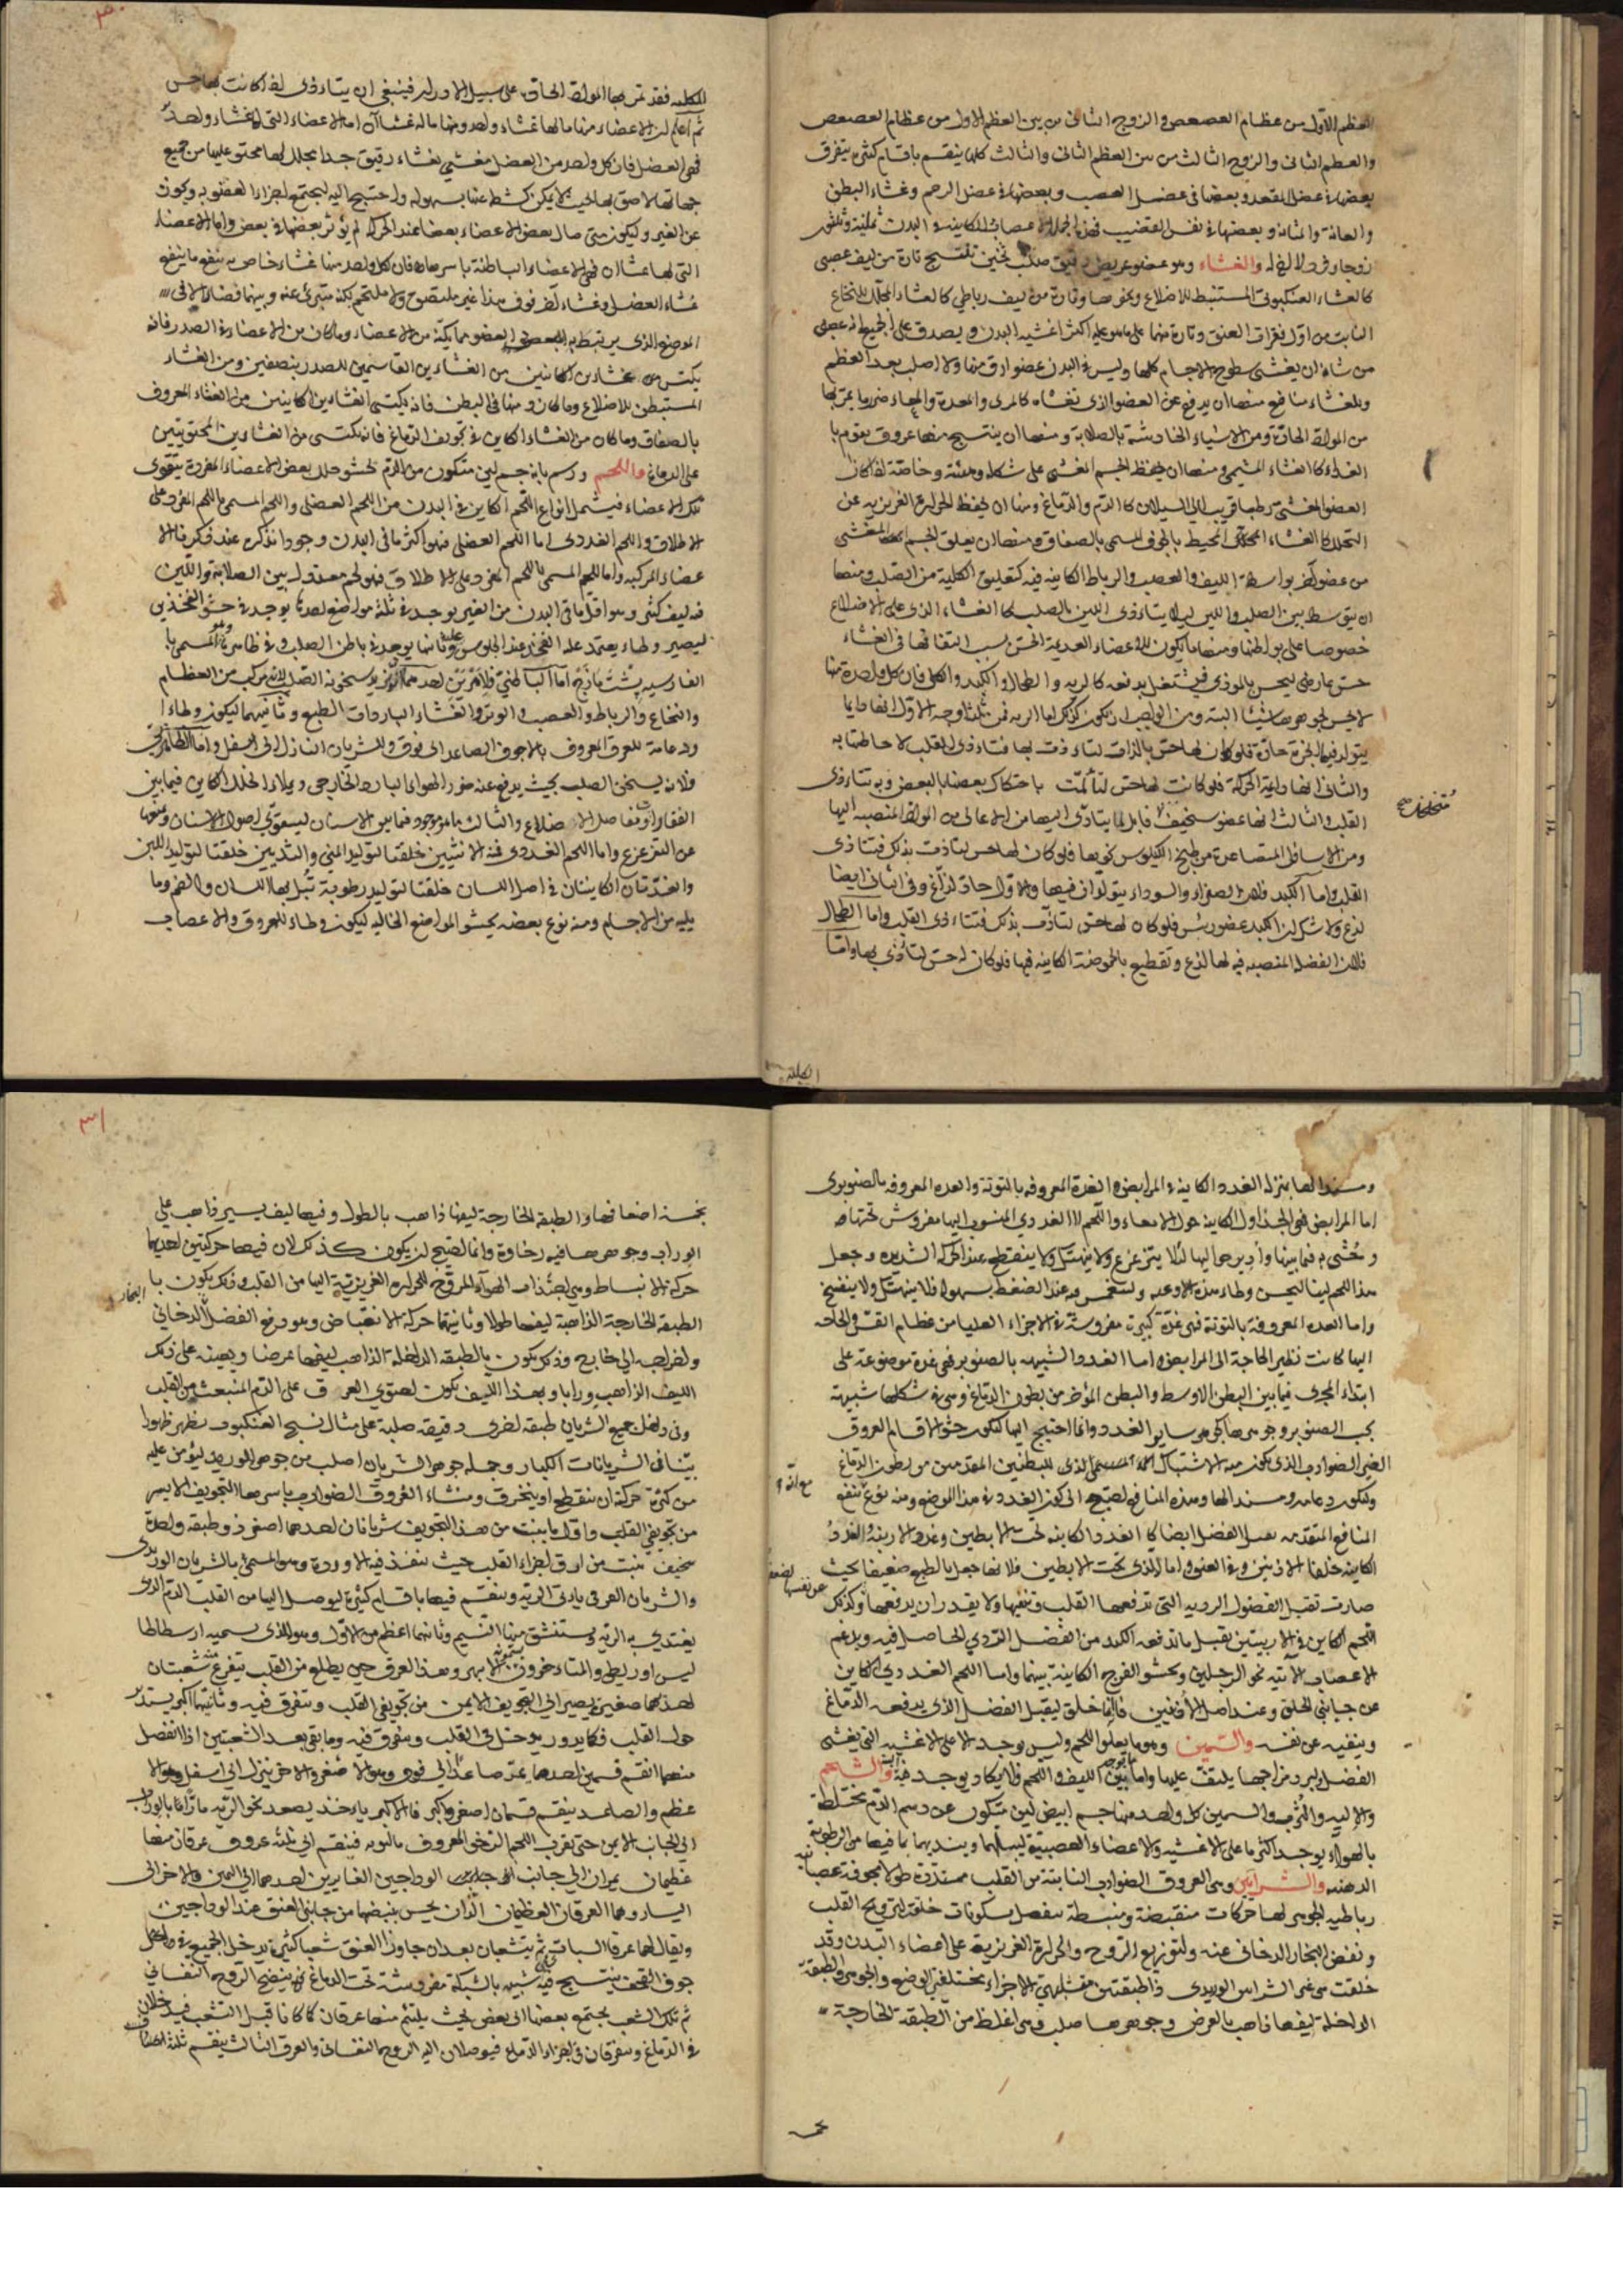 العظم الاول من عظام العصعص والزوج الثانى من بين العظم الاول من عظام العصعص
والعظم الثانى والزوج الثالث من بين العظم الثانى والثالث كلها ينقسم باقسام كثيرة يتفرق
بعضها فى عضل المقعدة وبعضها فى عضل القضيب وبعضها فى عضل الرحم وغشاء البطن
والعانة والمثانة وبعضها فى نفس القضيب فهذه جملة الاعصاب الكاينة فى البدن ثمانية وثلثون
زوجا وفرد لا اخ له والغشاء وهو عضو عريض رقيق صلب ثخين تنتسج تارة من ليف عصبى
كالغشاء العنكبوتى المستبطن للاضلاع ونحوها وتارة من ليف رباطي كالغشاء المجلل للنخاع
النابت من اول فقرات العنق وتارة منهما على ما هو عليه اكثر اغشية البدن ويصدق على الجميع انه عصبى
من شانه ان يغشى سطوح الاجسام كلها وليس فى البدن عضو ارق منها ولا اصلب بعد العظم
وللغشاء منافع منها ان يدفع عن العضو الذى تغشاه كالمرى والمعدة والمعاء ضرر ما يمر بها
من المواد الحادة ومن الاشياء الخادشة بالصلابة ومنها ان ينتسج منها عروق يقوم با
الغذاء كالغشاء المشيمى ومنها ان يحفظ الجسم المغشى على شكله وهيئته وخاصة اذا كان
العضو المغشى رطبا قريبا الى السيلان كالدم والدماغ ومنها ان يحفظ الحرارة الغريزية عن
التحلل كالغشاء المجلل المحيط بالجوف المسمى بالصفاق ومنها ان يعلق الجسم المغشى
من عضو اخر بواسطة الليف والعصب والرباط الكاينة فيه كتعليق الكلية من الصلب ومنها
ان يتوسط بين الصلب واللين ليلا يتاذى اللين بالصلب كالغشاء الذى على الاضلاع
خصوصا على بواطنها ومنها ما يكون للاعضاء العديمة الحس بسبب التفافها فى الغشاء
حس عارضى ليحس بالموذى فيشتغل بدفعه كالرية والطحال والكبد والكلى فان كل واحدة منها
لا يحس بجوهرها شيئا البتة ومن الواجب ان يكون كذلك اما الرية فمن ثلثة اوجه الاول انها دايما
يتولد فيها ابخرة حادة فلو كان لها حس بالذات لتاذت بها فتاذى القلب لاحاطتها به
والثانى انها دايمة الحركة فلو كانت لها حس لتألمت باحتكاك بعضها بالبعض وبه تتاذى
القلب والثالث انها عضو سخيف قابل لما يتادى اليها من الاعالى من المواد المنصبة اليها
متخلخل صح
ومن الاسافل المتصاعدة من طبخ الكيلوس نحوها فلو كان لها حس لتاذت بذلك فيتاذى
القلب واما الكبد فلان الصفراء والسوداء يتولدان فيها والاول حاد لذاع وفى الثانى ايضا
لذع ولا شك ان الكبد عضو رئيس فلو كان لها حس لتاذت بذلك فتتاذى القلب واما الطحال
فلان الفضلة المنصبة فيه لها لذع وتقطيع بالحموضة الكاينة فيها فلو كان له حس لتاذى بها واما
الكلية
٣٠
الكلية فقد تمر بها المواد الحادة على سبيل الادرار فينبغى ان يتاذى لو كانت لها حس
ثم اعلم ان الاعضاء منها ما لها غشاء واحد ومنها ما له غشاآن اما الاعضاء التى لها غشاء واحد
فهى العضل فان كل واحد من العضل مغشى بغشاء رقيق جدا يجلل لها محتو عليها من جميع
جهاتها لاصق بها بحيث لا يمكن كشطه عنها بسهولة واحتيج اليه ليجتمع اجزاء العضو به ويكون
عن الغير وليكون متى صاك بعض الاعضاء بعضا عند الحركة لم يؤثر بعضها فى بعض واما الاعضاء
التى لها غشاآن فهى الاعضاء الباطنة باسرها فان كل واحد منها غشاء خاص به ينفعه ما ينفع
غشاء العضل وغشاء آخر فوق هذا غير ملتصق ولا ملتحم بكنه متبرى عنه وبينهما فضاء الا فى
الموضع الذى يرتبط به العضو مما يكنه من الاعضاء وما كان من الاعضاء فى الصدر فانه
يكتسى من غشاءين الكاينين من الغشاءين القاسمين للصدر بنصفين ومن الغشاء
المستبطن للاضلاع وما كان منها فى البطن فانه يكتسى الغشاءين الكاينين من الغشاء المعروف
بالصفاق وما كان من الغشاء الكاين فى تجويف الدماغ فانه يكتسى من الغشاءين المحتويين
على الدماغ واللحم ورسم بانه جسم لين متكون من الدم يحشو خلل بعض الاعضاء المفردة يتقوى
تلك الاعضاء فيشمل انواع اللحم الكاين فى البدن من اللحم العضلى واللحم المسمى باللحم المفرد على
الاطلاق واللحم الغددى اما اللحم العضلى فهو اكثر ما فى البدن وجودا نذكره عند ذكرنا الا
عضاء المركبة واما اللحم المسمى باللحم المفرد على الاطلاق فهو لحم معتدل بين الصلابة واللين
فيه ليف كثير وهو اقل ما فى البدن من الغير يوجد فى ثلثة مواضع احدها يوجد فى حشو الفخذين
ليصير وطاء يعتمد عليه الفخذ عند الجلوس وثانيها يوجد فى باطن الصلب وفى ظاهره المسمى با
لفارسية پشت مازه اما الباطنى فلامرين احدهما ليزيد سخونة الصلب لانه مركب من العظام
والنخاع والرباط والعصب والوتر والغشاء الباردات الطبع وثانيهما ليكون وطاءا
ودعامة للعرق المعروف بالاجوف الصاعد الى فوق وللشريان النازل الى اسفل واما الظاهرى
فلانه يسخن الصلب بحيث يدفع عنه ضرر الهواء البارد الخارجى ويملاء الخلل الكاين فيما بين
الفقار ومفاصل الاضلاع والثالث ما هو موجود فيما بين الاسنان ليتقوى اصول الاسنان ويمنعها
عن التزعزع واما اللحم الغددى فمنه الانثيين خلقتا لتوليد المنى والثديين خلقتا لتوليد اللبن
والغدتان الكاينتان فى اصل اللسان خلقتا لتوليد رطوبة تبل بها اللسان والفم وما
يليه من الاجسام ومنه نوع بعضه يحشو المواضع الخالية ليكون وطاء للعروق والاعصاب
ومسندا لها بمنزلة الغدد الكاينة فى المرابض والغدة المعروفة بالتوتة والغدة المعروفة بالصنوبرى
اما المرابض فهى الجداول الكاينة حول الامعاء واللحم الغددي المنسوب اليها مفروش تحتها
وحشى فيما بينها وأدير حواليها لئلا يتزعزع ولا ينهتك ولا ينقطع عند الحركة الشديدة وجعل
هذا اللحم لينا ليحسن وطاء هذه الاوعية ولينغمز عند الضغط بسهولة فلا ينهتك ولا ينفسخ
واما الغدة المعروفة بالتوتة فهى غدة كبيرة مفروشة فى الاجزاء العليا من عظام القس والحاجة
اليها كانت نظير الحاجة الى المرابض واما الغدد الشبيهة بالصنوبر فهى غدة موضوعة على
ابتداء المجرى فيما بين البطن الاوسط والبطن المؤخر من بطون الدماغ وهى فى شكلها شبيهة
بحب الصنوبر وجوهرها كجوهر ساير الغدد وانما احتيج اليها ليكون حشو اقسام العروق
الغير الضوارب الذى يكون منه الاشتباك الذى للبطنين المقدمين من بطون الدماغ
وليكون دعامة ومسندا لها وهذه المنافع احتيج الى كون الغدد فى هذا الموضع ومنه نوع ينفع
مع انه
المنافع المتقدمة يقبل الفضل ايضا كالغدد الكاينة تحت الابطين وغدد الاربية والغدد
الكاينة خلف الاذنين وفى العنق اما الذى تحت الابطين فلانها جعل بالطبع ضعيفا بحيث
صارت تقبل الفضول الردية التى تدفعها القلب وينفيها ولا يقدر ان يدفعها وكذلك
عن نفسها لضعف
اللحم الكاين فى الاربيتين يقبل ما تدفعه الكبد من الفضل الردي الحاصل فيه ويدعم
الاعصاب الآتية نحو الرجلين ويحشو الفرج الكاينة بينهما واما اللحم الغددي الكاين
عن جانبى الحلق وعند اصل الاذنين فانما خلق ليقبل الفضل الذى يدفعه الدماغ
وينفيه عن نفسه والسمين وهو ما يعلو اللحم وليس يوجد الا على الاغشية التى يغشى
العضل لبرد مزاجها يلتف عليها واما بين الليف واللحم فلا يكاد يوجد فيه والشحم
والالية والثرب والسمين كل واحد منها جسم ابيض لين متكون عن دسم الدم تختلطة
بالهواء يوجد اكثر ما على الاغشية والاعضاء العصبية ليبلها وينديها بما فيها من الرطوبة
الدهنية والشرايين وهى العروق الضوارب النابتة من القلب ممتدة طولا مجوفة عصبانية
رباطية الجوهر لها حركات منقبضة ومنبسطة ينفصل بسكونات خلقت لترويح القلب
ونفض البخار الدخانى عنه ولتوزيع الروح والحرارة الغريزية على اعضاء البدن وقد
خلقت هى غير الشريان الوريدى ذا طبقتين متشابهتى الاجزاء مختلفتى الوضع والجوهر والطبقة
الداخلة ليفها ذاهب بالعرض وجوهرها صلب وهى اغلظ من الطبقة الخارجة
بخمسة
٣١
بخمسة اضعافها والطبقة الخارجة ليفها ذاهب بالطول وفيها ليف يسير ذاهب على
الوراب وجوهرها فيه رخاوة وانما احتيج ان يكون كذلك لان فيها حركتين احديهما
حركة الانبساط وهى اجتذاب الهواء المروح للحرارة الغريزية اليها من القلب وذلك يكون با
الطبقة الخارجة الذاهبة ليفها طولا وثانيتهما حركة الانقباض وهو دفع الفضل الدخانى
البخار
واخراجه الى خارج وذلك يكون بالطبقة الداخلة الذاهب ليفها عرضا ويعينه على ذلك
الليف الذاهب ورابا وبهذا الليف يكون احتوى العرق على الدم المنبعث من القلب
وفى داخل جميع الشريان طبقة اخرى دقيقة صلبة على مثال نسج العنكبوت يظهر ظهورا
بينا فى الشريانات الكبار وجملة جوهر الشريان اصلب من جوهر الوريد ليؤمن عليه
من كثرة حركة ان ينقطع او ينخرق ومنشاء العروق الضوارب باسرها التجويف الايسر
من تجويفى القلب واول ما ينبت من هذا التجويف شريانان احدهما اصغر ذو طبقة واحدة
سخيف ينبت من ارق اجزاء القلب حيث ينفذ فيه الاوردة وهو المسمى بالشريان الوريدى
والشريان العرقى ياتى الرية وينقسم فيها باقسام كثيرة ليوصل اليها من القلب الدم الذى
يغتذى به الرية ويستنشق منها النسيم وثانيهما اعظم من الاول وهو الذى يسميه ارسطاطا
ليس اورطى والمتاخرون يسمونه الابهر وهذا العرق حين يطلع من القلب يتفرع منه شعبتان
احديهما صغيرة يصير الى التجويف الايمن من تجويفى القلب ويتفرق فيه وثانيتهما اكبر يستدير
حول القلب فكما يدور يدخل الى القلب ويتفرق فيه وما بقى بعد الشعبتين اذا انفصل
منهما انقسم قسمين احدهما يمر صاعدا الى فوق وهو الاصغر والاخر ينزل الى اسفل وهو الا
عظم والصاعد ينقسم قسمان اصغر واكبر فالاكبر ياخذ يصعد نحو الرية مارا بالوراب
الى الجانب الايمن حتى يقرب اللحم الرخو المعروف بالتوتة فينقسم الى ثلثة عروق عرقان منها
عظيمان يمران الى جانب الوداجين الغايرين احدهما الى اليمين والاخر الى
اليسار وهما العرقان العظيمان اللذان يحس بنبضهما من جانبى العنق عند الوداجين
ويقال لهما عرقا السبات ثم يتشعبان بعد ان جاوز العنق شعبا كثيرة يدخل الجميع فى داخل
جوف القحف ينتسج فيه شبيه بالشبكة مفروشة تحت الدماغ ينضج الروح النفسانى
ثم تلك الشعب يجتمع بعضها الى بعض بحيث يلتئم منها عرقان كما كانا قبل التشعب فيدخلان
فى الدماغ ويتفرقان فى اجزاء الدماغ فيوصلان اليه الروح النفسانى والعرق الثالث ينقسم ثلثة اقسام